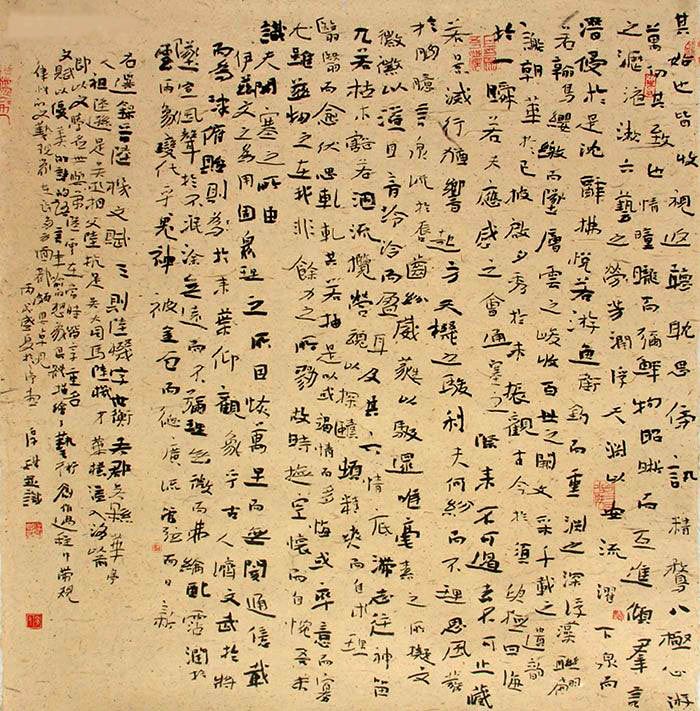 其始也皆收視返聽耽思傍訊精騖八極心游
萬仞其致也情曈曨而彌鮮物昭晰而互進傾群言
之瀝液漱六藝之芳潤浮天淵以安流濯下泉而
潛侵於是沈辭拂悅若游魚銜鉤而重淵之深浮藻聯翩
若翰鳥纓繳而墜層雲之峻收百世之闕文采千載之遺韻
謝朝華於已披啟夕秀於未振觀古今於須臾撫四海
於一瞬若夫應感之會通塞之際來不可遏去不可止藏
若景滅行猶響起方天機之駿利夫何紛而不理思風發
於胸臆言泉流於唇齒紛葳蕤以馺遝唯毫素之所擬文
徽徽以溢目音泠泠而盈耳及其六情底滯志往神留
兀若枯木豁若涸流攬營魂以探賾頓精爽而自求理
翳翳而愈伏思軋軋其若抽是以或竭情而多悔或率意而寡
尤雖茲物之在我非餘力之所勠故時撫空懷而自惋吾未
識夫開塞之所由
伊茲文之為用固眾理之所因恢萬里而無閡通億載
而為津俯貽則於來葉仰觀象乎古人濟文武於將
墜宣風聲於不泯塗無遠而不彌理無微而弗綸配霑潤於
雲雨象變化乎鬼神被金石而德廣流管弦而日新
右選錄晉陸機文賦三則陸機字士衡吳郡吳縣華亭
人祖陸遜是吳丞相父陸抗是吳大司馬陸機才華橫溢入洛以前
即以文學名世與弟陸雲
文賦以優美的詩的語言描繪了藝術創作過程
丙戌盛夏於